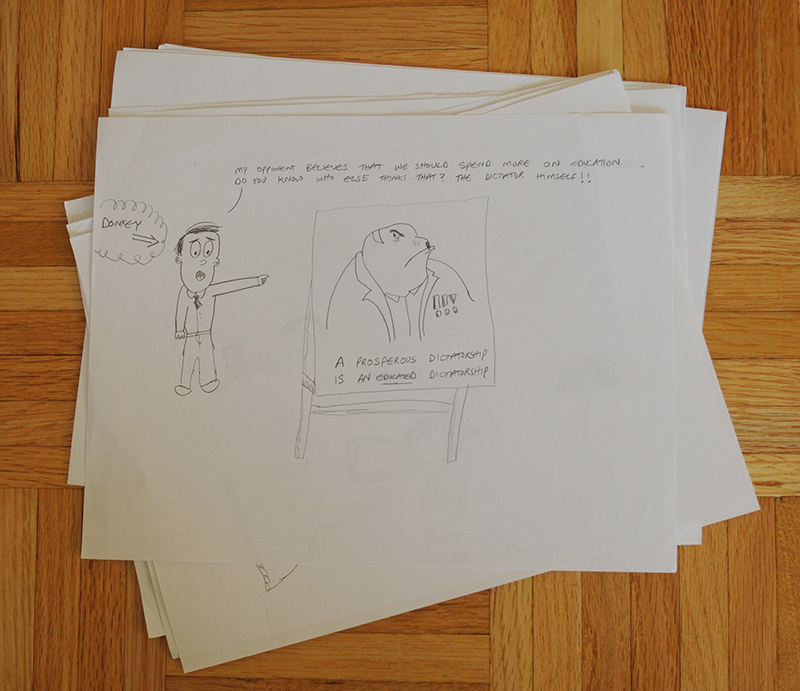 MY OPPONENT BELIEVES THAT WE SHOULD SPEND MORE ON EDUCATION.
DO YOU KNOW WHO ELSE THINKS THAT? THE DICTATOR HIMSELF!!
DONKEY
A PROSPEROUS DICTATORSHIP
IS AN EDUCATED DICTATORSHIP